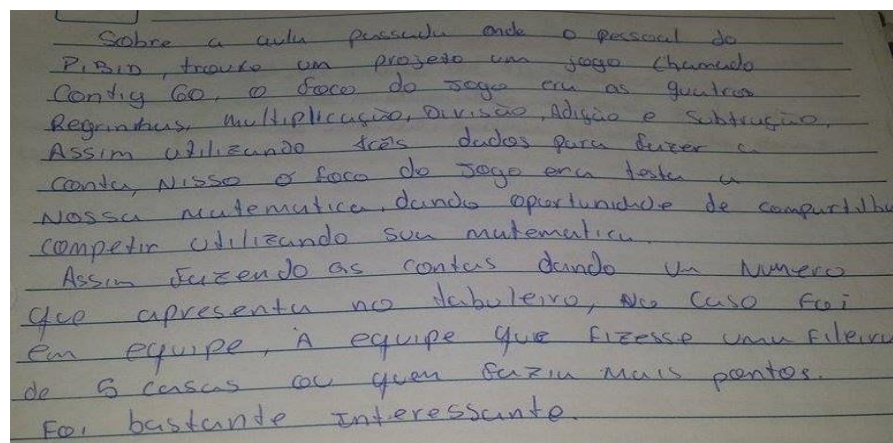 Sobre a aula passada onde o pessoal do
PiBiD, trouxe um projeto um jogo chamado
Contig 60, o foco do jogo era as quatros
Regrinhas, multiplicação, Divisão, Adição e subtração.
Assim utilizando três dados para fazer a
conta, Nisso o foco do jogo era testa a
Nossa matematica, dando oportunidade de compartilha
competir utilizando sua matematica.
Assim fazendo as contas dando um Numero
que apresenta no tabuleiro, No caso foi
em equipe, A equipe que fizesse uma fileira
de 5 casas ou quem fazia mais pontos.
Foi bastante Interessante.